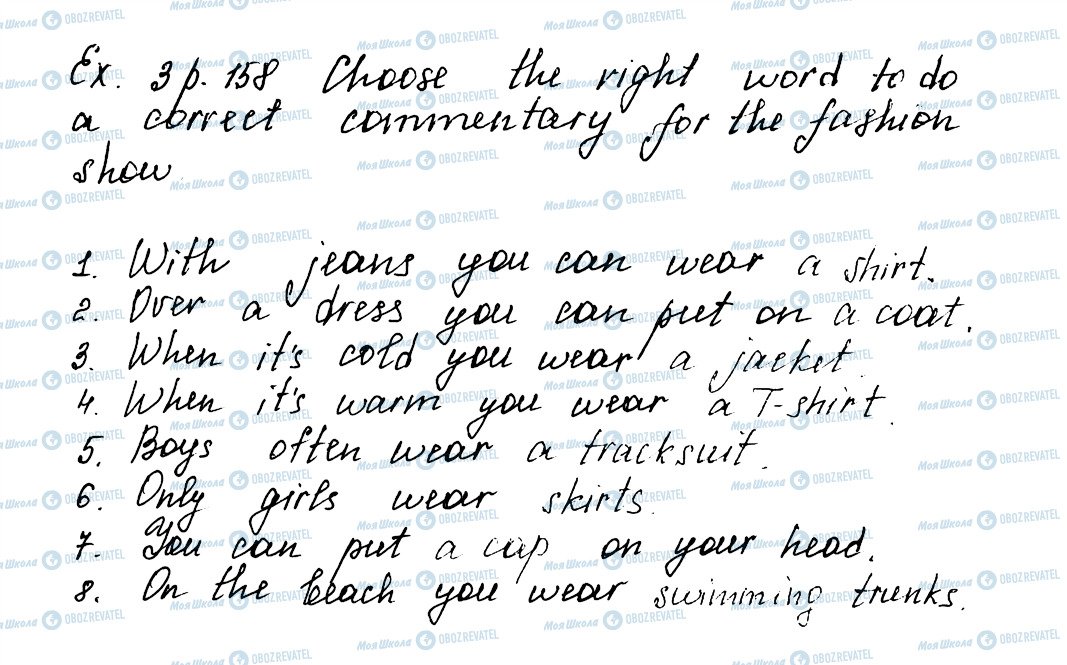 Ex. 3 p. 158 Choose the right word to do
a correct commentary for the fashion
show
1. With jeans you can wear a shirt.
2. Over a dress you can put on a coat.
3. When it's cold you wear a jacket.
4. When it's warm you wear a T-shirt.
5. Boys often wear a tracksuit.
6. Only girls wear skirts.
7. You can put a cap on your head.
8. On the beach you wear swimming trunks.